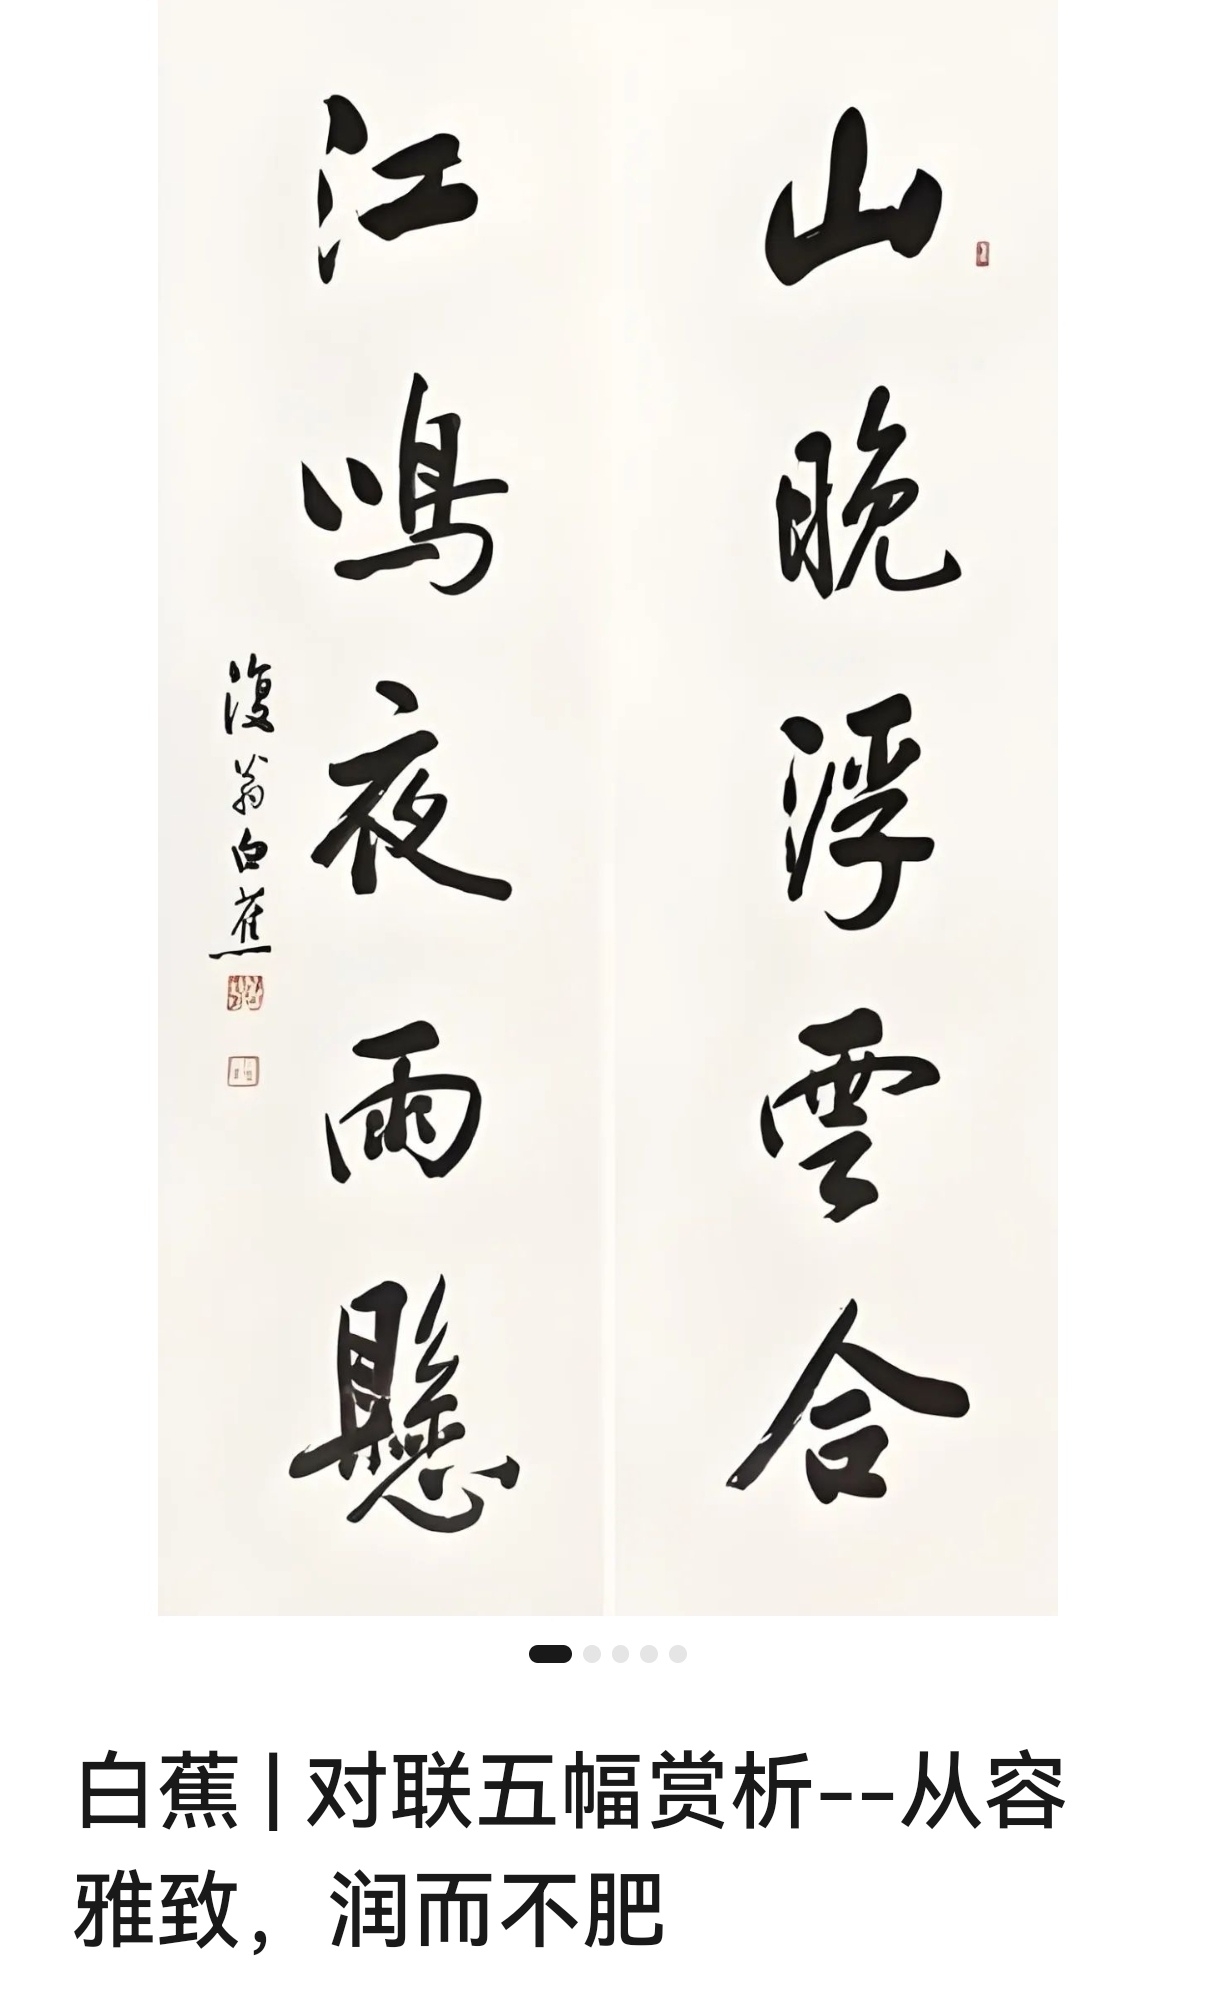 山晚浮雲合
江鳴夜雨懸
復翁白蕉
白蕉 | 对联五幅赏析--从容
雅致，润而不肥